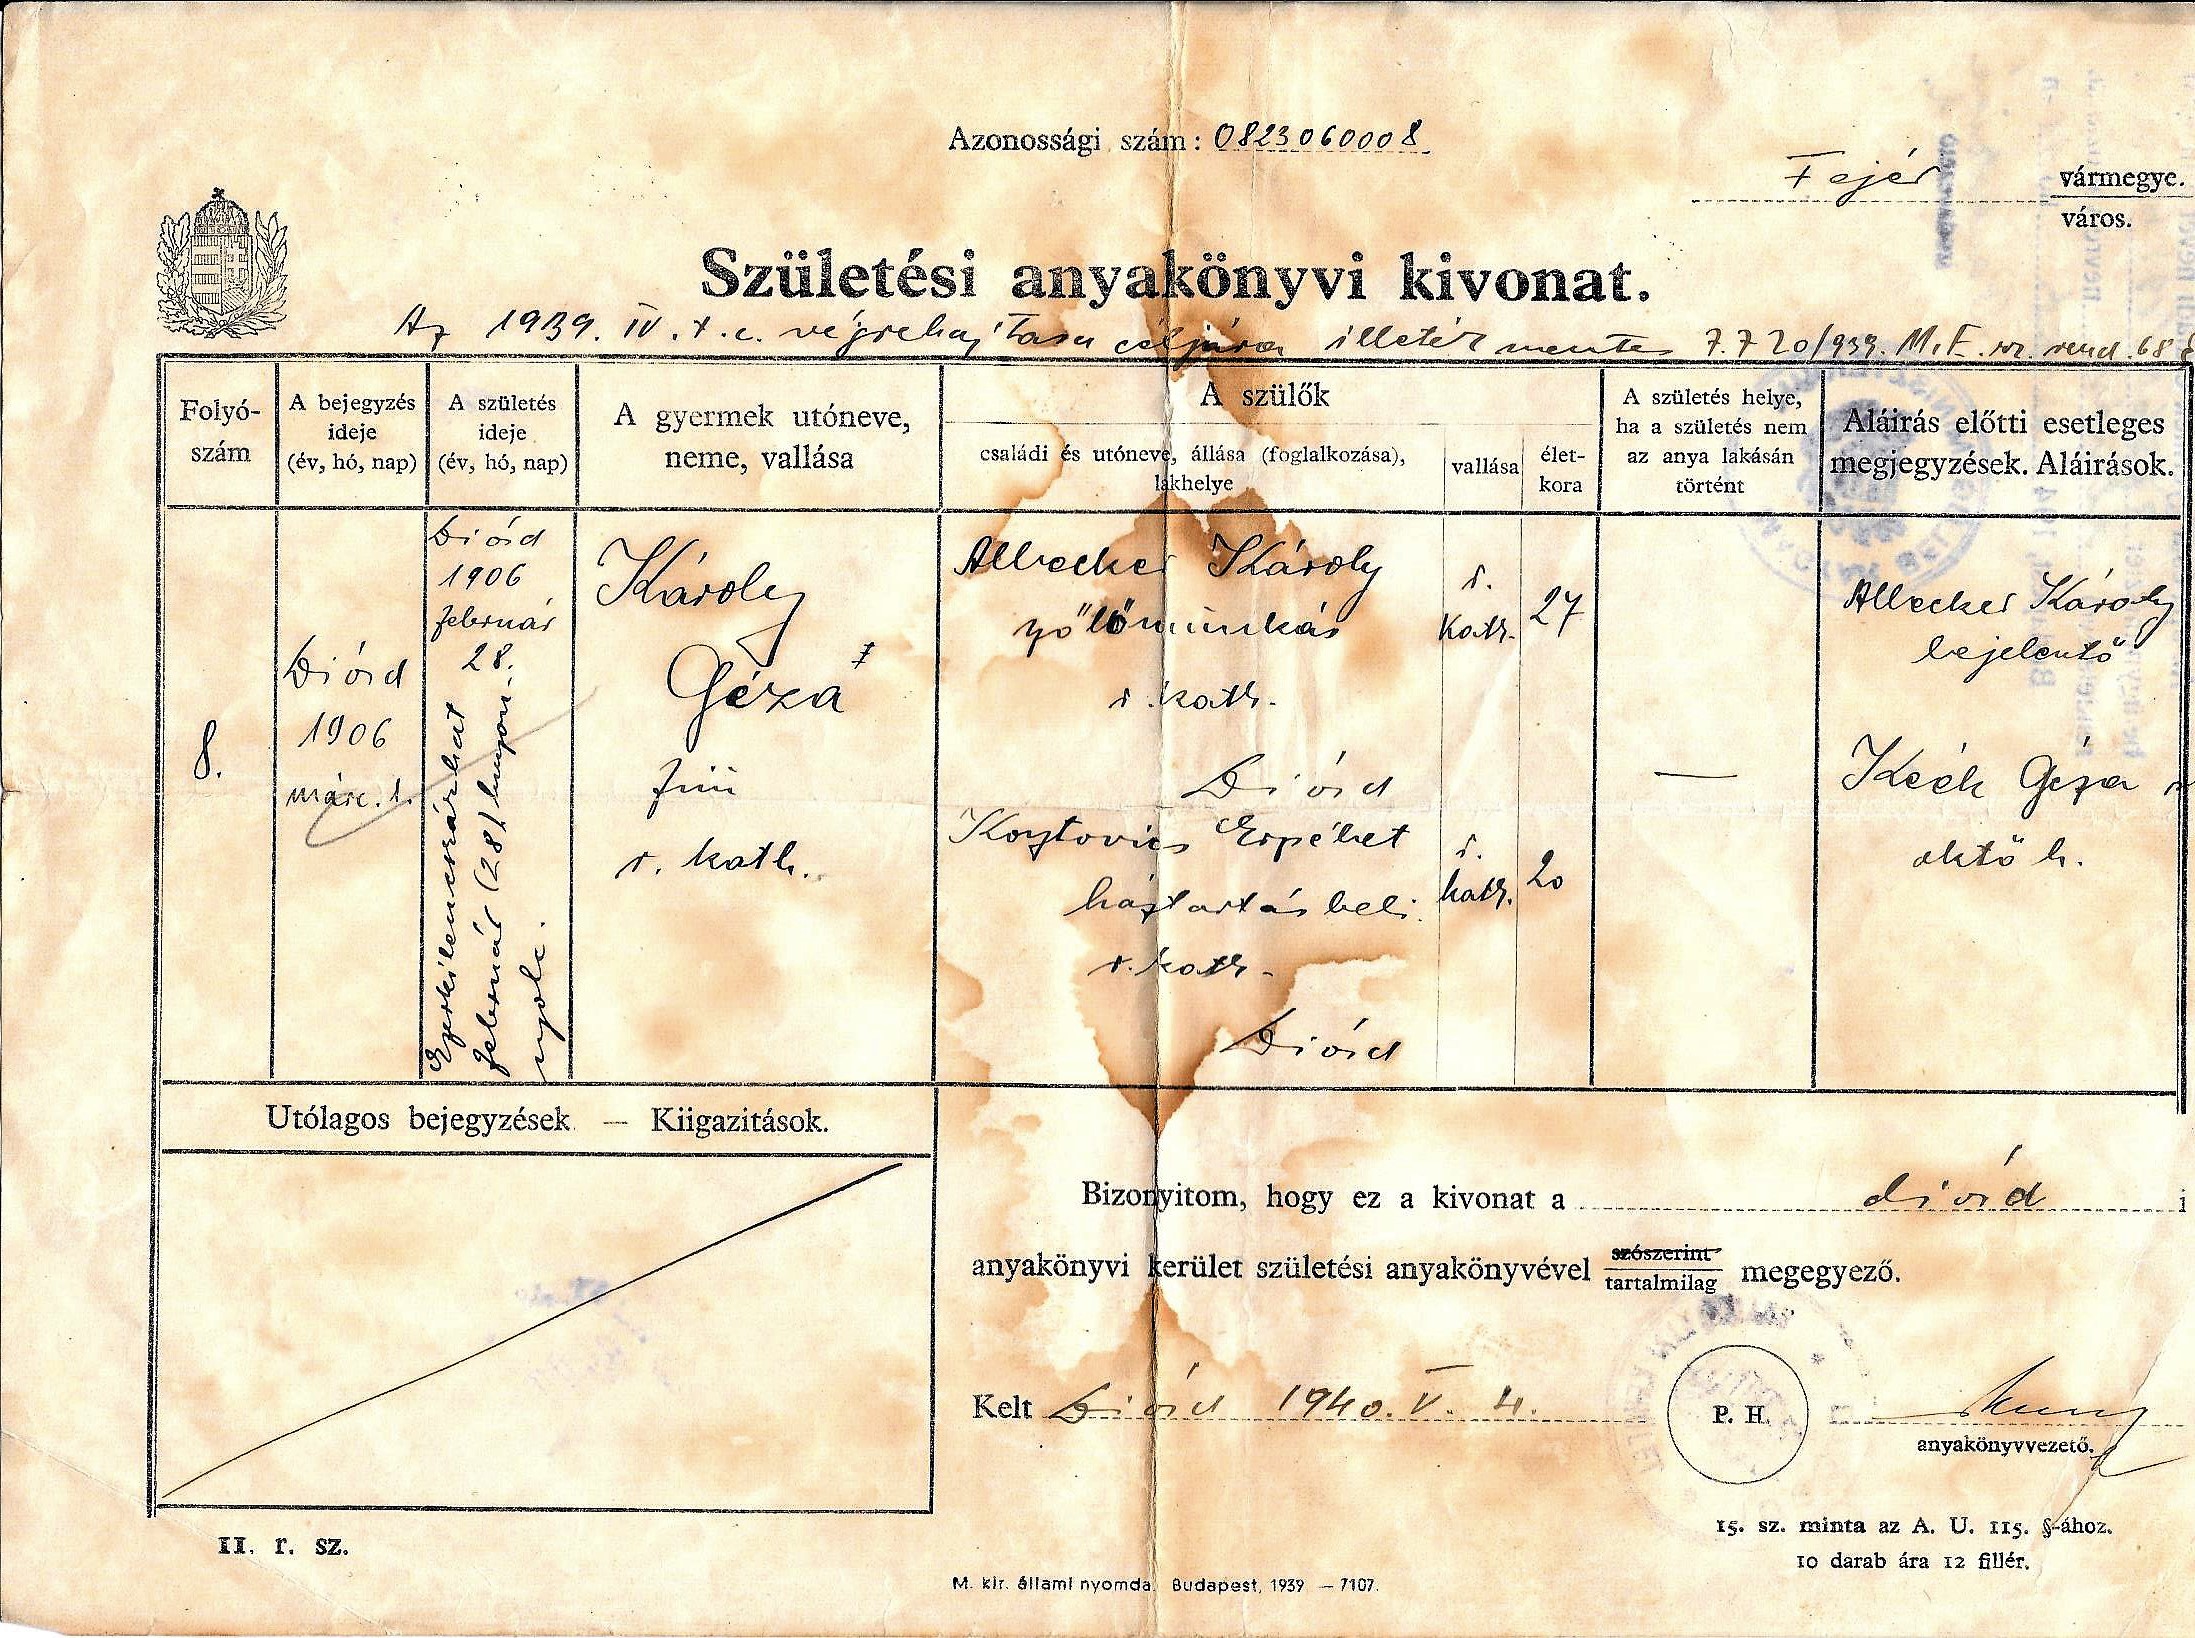 Azonossági szám: 0823060008
Fejér vármegye.
város.
Születési anyakönyvi kivonat.
Az 1939. IV. t. c. végrehajtása céljára illeték mentes 7.720/939. M. E. sz. rend. 68 §
Folyó-
szám
A bejegyzés
ideje
(év, hó, nap)
A születés
ideje
(év, hó, nap)
A gyermek utóneve,
neme, vallása
A szülők
családi és utóneve, állása (foglalkozása),
lakhelye
vallása
élet-
kora
A születés helye,
ha a születés nem
az anya lakásán
történt
Aláírás előtti esetleges
megjegyzések. Aláirások.
8.
Diósd
1906
márc. 1.
Diósd
1906
február
28.
Ezerkilencszázhat
február (28) huszon-
nyolc.
Károly
Géza
fiú
r. kath.
Albecker Károly
szőlőmunkás
r. kath.
Diósd
r.
kath.
27
Erzsébet
háztartásbeli
r. kath.
Diósd
r.
kath.
20
—
Albecker Károly
bejelentő
Géza
Utólagos bejegyzések. — Kiigazitások.
Bizonyitom, hogy ez a kivonat a diósd i
anyakönyvi kerület születési anyakönyvével szószerint
tartalmilag megegyező.
Kelt Diósd 1940. V. 4.
P. H.
anyakönyvvezető.
II. r. sz.
15. sz. minta az A. U. 115. §-ához.
10 darab ára 12 fillér.
M. kir. állami nyomda. Budapest, 1939 — 7107.